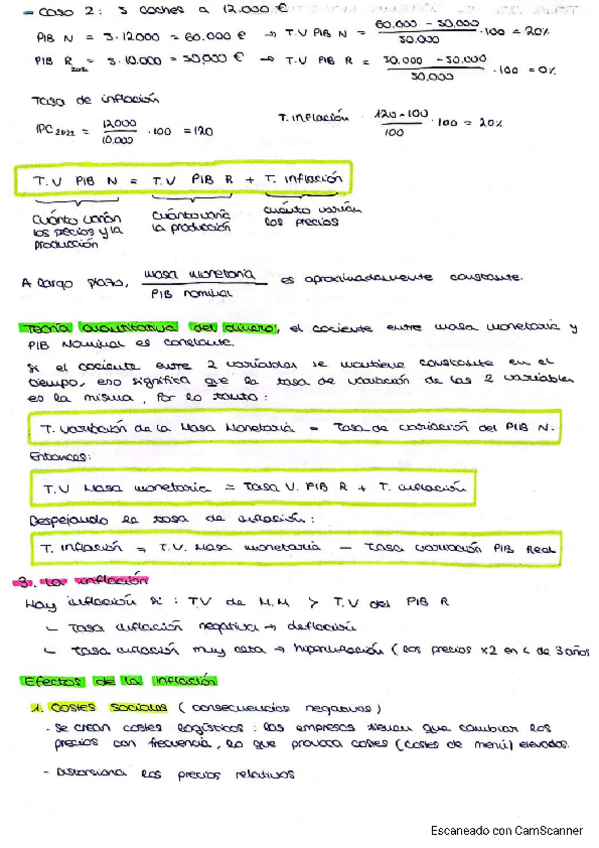 - Caso 2: 5 coches a 12.000 €
PIB N = 5·12000 = 60.000 € → T.V PIB N = 60.000 - 50.000 / 50.000 ·100 = 20%
PIB R 2021 = 5·10.000 = 50,000 € → T.V PIB R = 50.000 - 50.000 / 50.000 ·100 = 0%
Tasa de inflación
IPC 2022 = 12000 / 10.000 ·100 = 120
T. Inflación 120-100 / 100 ·100 = 20%
T.V PIB N = T.V PIB R + T. Inflación
cuánto varían los precios y la producción
cuánto varía la producción
cuánto varían los precios
A largo plazo, masa monetaria / PIB nominal es aproximadamente constante.
Teoría cuantitativa del dinero, el cociente entre masa monetaria y
PIB Nominal es constante.
Si el cociente entre 2 variables se mantiene constante en el
tiempo, eso significa que la tasa de variación de las 2 variables
es la misma, Por lo tanto:
T. variación de la Masa Monetaria = Tasa de variación del PIB N.
Entonces:
T.V Masa monetaria = Tasa V. PIB R + T. inflación
Despejando la tasa de inflación:
T. Inflación = T.V. Masa monetaria - Tasa variación PIB Real
3. La inflación
Hay inflación si : TV de M.M > T.V del PIB R
Tasa inflación negativa → deflación
Tasa inflación muy alta → hiperinflación (los precios x2 en < de 3 años
Efectos de la inflación
1. Costes sociales (consecuencias negativas)
- Se crean costes logísticos : las empresas tienen que cambiar los
precios con frecuencia, lo que provoca costes (costes de menú) elevados.
- Distorsiona los precios relativos
Escaneado con CamScanner